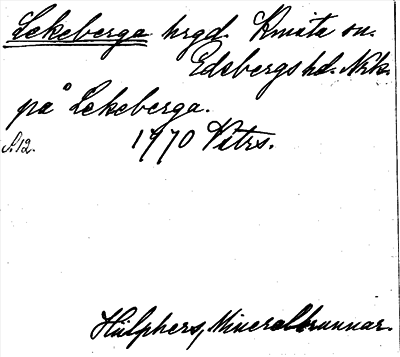 Lekeberga hrgd. Knista sn.
Edsbergs hd. Nrk.
på Lekeberga.
s. 12. 1770 Vstrs.
Hülphers, Mineralbrunnar.